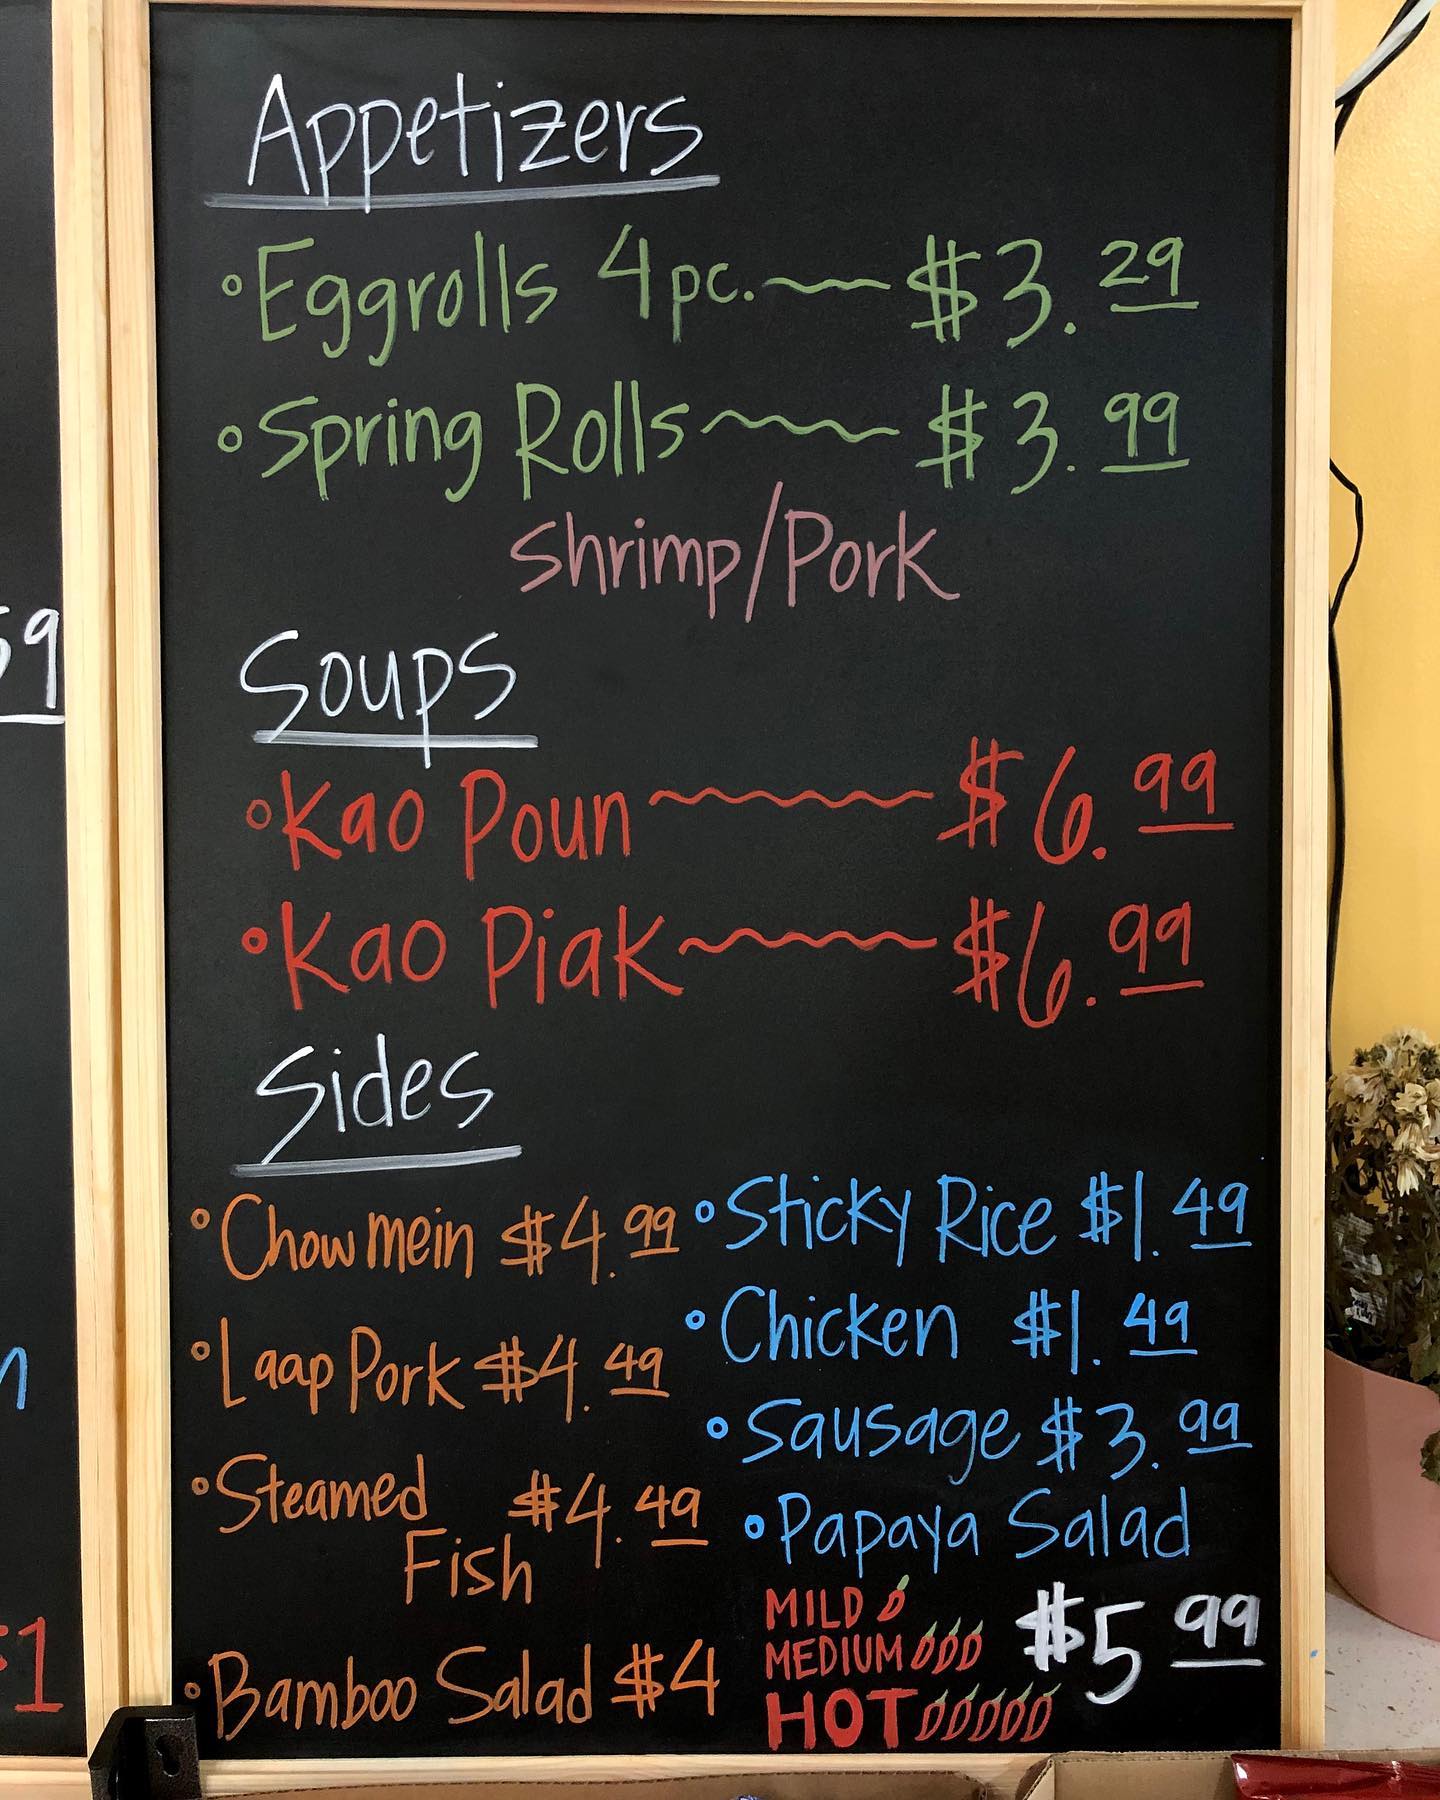 Appetizers
Eggrolls 4pc. $3.29
Spring Rolls $3.99
Shrimp/Pork
Soups
Kao Poun $6.99
Kao Piak $6.99
Sides
Chow mein $4.99
Laap Pork $4.49
Steamed $4.49
Fish
Bamboo Salad $4
Sticky Rice $1.49
Chicken $1.49
Sausage $3.99
Papaya Salad
MILD
MEDIUM
HOT
$5 99
59
n
$1